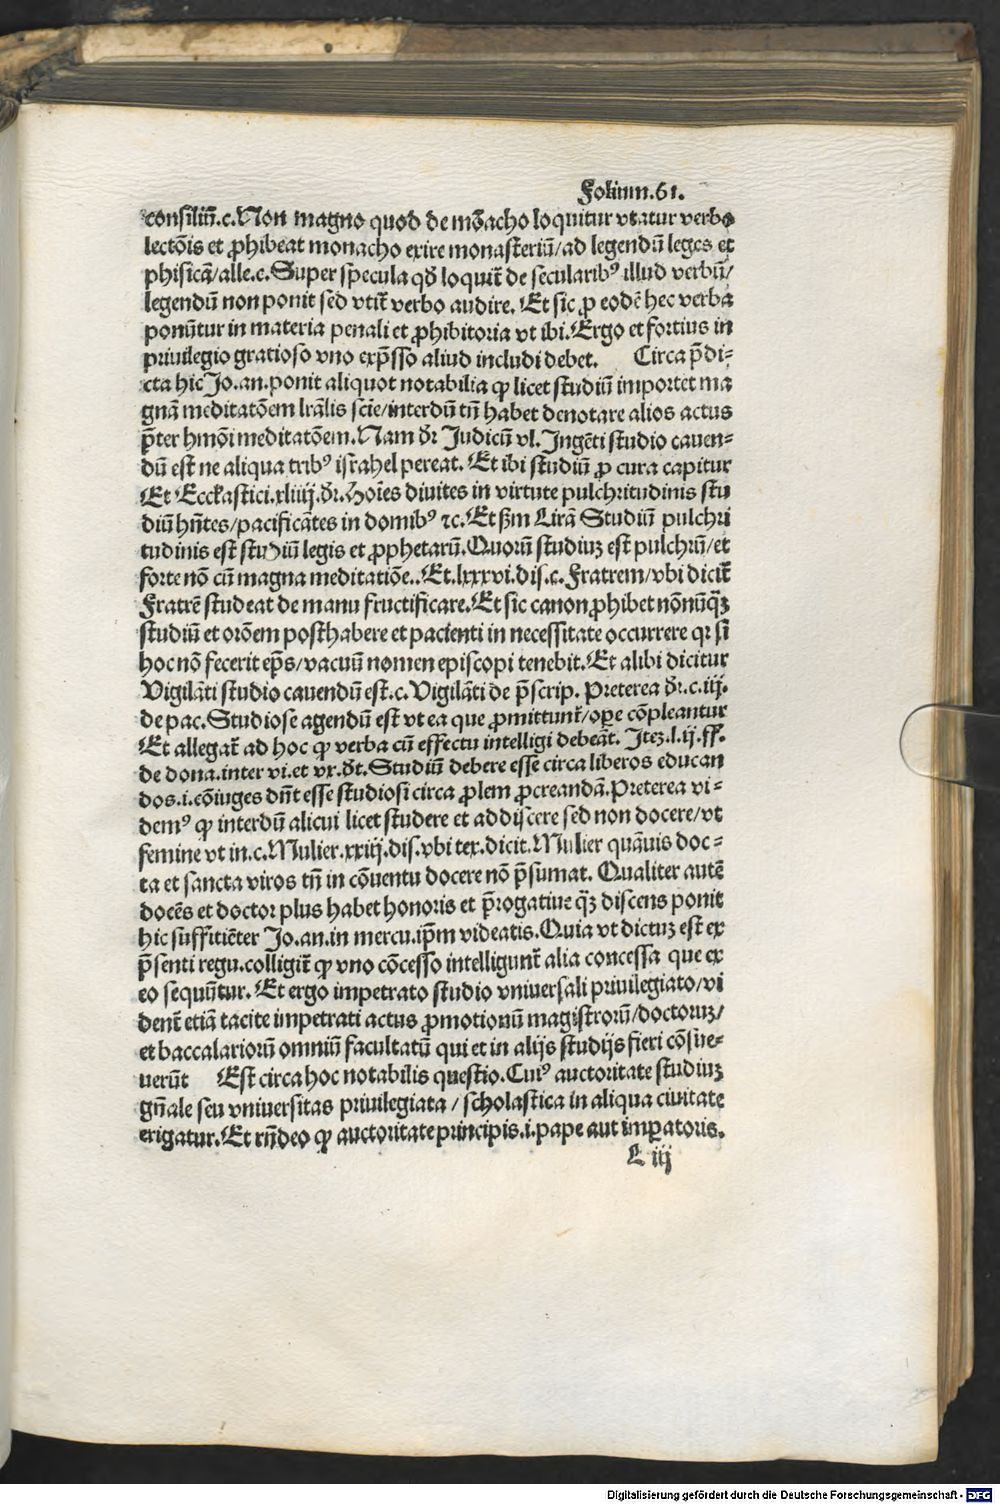 Folium.61.
consiliū.c.Non magno quod de mōacho loquitur vtatur verbo
lectōis et ꝓhibeat monacho exire monasteriū/ad legendū leges et
phisicā/alle.c.Super specula qđ loquit̄ de secularibꝰ illud verbū/
legendū non ponit sed vtit̄ verbo audire. Et sic ꝓ eodē hec verba
ponūtur in materia penali et ꝓhibitoria vt ibi.Ergo et fortius in
priuilegio gratioso vno exp̄sso aliud includi debet. Circa p̄di⸗
cta hic Jo.an.ponit aliquot notabilia ꝙ licet studiū importet ma
gnā meditatōem lr̄alis scie/interdū tn̄ habet denotare alios actus
p̄ter hmōi meditatōem.Nam dr̄ Judicū vl.Ingēti studio cauen⸗
dū est ne aliqua tribꝰ israhel pereat. Et ibi studiū ꝓ cura capitur
Et Eccl̄astici.xliiij.dr̄.Hoīes diuites in virtute pulchritudinis stu
diū hn̄tes/pacificātes in domibꝰ ⁊c.Et s̄m Lirā Studiū pulchri
tudinis est studiū legis et ꝓphetarū.Quorū studiuꝫ est pulchrū/et
forte nō cū magna meditatiōe..Et.lxxxvi.dis.c.Fratrem/vbi dicit̄
Fratrē studeat de manu fructificare.Et sic canon ꝓhibet nōnūq̄ꝫ
studiū et orōem posthabere et pacienti in necessitate occurrere qꝛ si
hoc nō fecerit ep̄s/vacuū nomen episcopi tenebit.Et alibi dicitur
Vigilāti studio cauendū est.c.Vigilāti de p̄scrip. Preterea dr̄.c.iij.
de pac.Studiose agendū est vt ea que ꝓmittunt̄/oꝑe cōpleantur
Et allegat̄ ad hoc ꝙ verba cū effectu intelligi debeāt. Iteꝫ.l.ij.ff.
de dona.inter vi.et vx.dt̄.Studiū debere esse circa liberos educan
dos.i.cōiuges dn̄t esse studiosi circa ꝓlem ꝓcreandā.Preterea vi⸗
demꝰ ꝙ interdū alicui licet studere et addiscere sed non docere/vt
femine vt in.c.Mulier.xxiij.dis.vbi tex.dicit.Mulier quāuis doc⸗
ta et sancta viros tn̄ in cōuentu docere nō p̄sumat. Qualiter autē
docēs et doctor plus habet honoris et p̄rogatiue q̄ꝫ discens ponit
hic suffitiēter Jo.an.in mercu.ip̄m videatis.Quia vt dictuꝫ est ex
p̄senti regu.colligit̄ ꝙ vno cōcesso intelligunt̄ alia concessa que ex
eo sequūtur. Et ergo impetrato studio vniuersali priuilegiato/vi
dent̄ etiā tacite impetrati actus ꝓmotionū magistrorū/doctoruꝫ/
et baccalariorū omniū facultatū qui et in alijs studijs fieri cōsue⸗
uerūt Est circa hoc notabilis questio.Cuiꝰ auctoritate studiuꝫ
gn̄ale seu vniuersitas priuilegiata / scholastica in aliqua ciuitate
erigatur.Et rn̄deo ꝙ auctoritate principis.i.pape aut imꝑatoris.
L iij
Digitalisierung gefördert durch die Deutsche Forschungsgemeinschaft - DFG